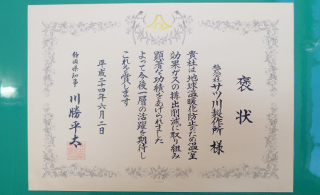 褒状
株式会社サツ川製作所 様
貴社は地球温暖化防止のため温室
効果ガスの排出削減に取り組み
顕著な功績をあげられました
よって今後一層の活躍を期待し
これを賞します
平成二十四年六月二日
静岡県知事 川勝平太